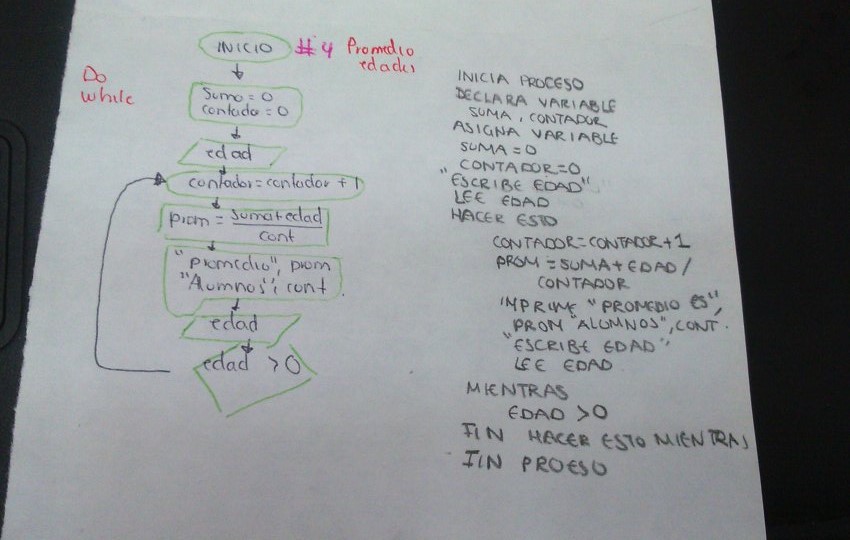 INICIO
# 4 Promedio
edades
Do
while
Suma = 0
contador = 0
edad
contador = contador + 1
prom = suma+edad
cont
"Promedio", prom
"Alumnos", cont.
edad
edad > 0
INICIA PROCESO
DECLARA VARIABLE
SUMA, CONTADOR
ASIGNA VARIABLE
SUMA = 0
CONTADOR=0
"ESCRIBE EDAD"
LEE EDAD
HACER ESTO
CONTADOR=CONTADOR+1
PROM = SUMA + EDAD /
CONTADOR
IMPRIME "PROMEDIO ES",
PROM "ALUMNOS", CONT.
"ESCRIBE EDAD"
LEE EDAD
MIENTRAS
EDAD >0
FIN HACER ESTO MIENTRAS
FIN PROESO